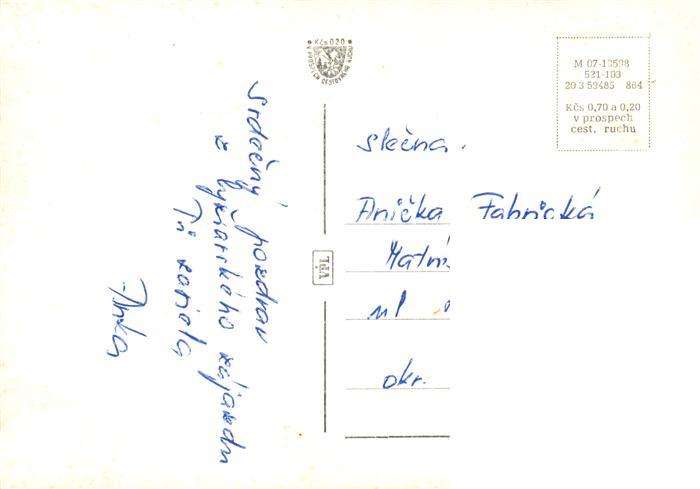 Srdečný pozdrav
z lyžiarského zájazdu
Ti zasiela
Anka
Kčs 0,20
M 07-13598
521-103
20 3 53485 864
Kčs 0,70 a 0,20
v prospech
cest. ruchu
slečna.
Anička
ul
okr.